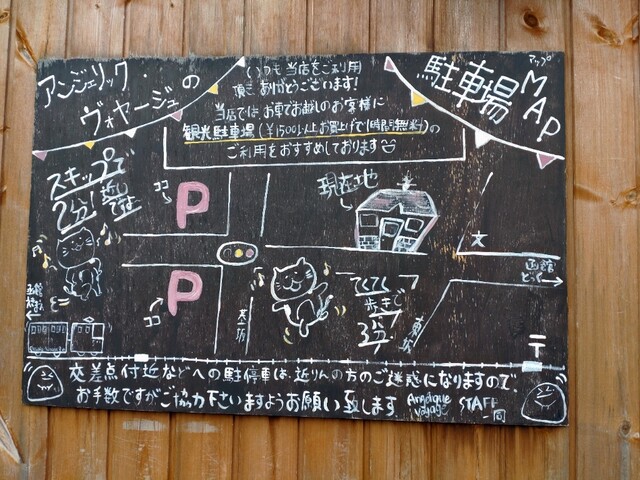 アンジェリック・
ヴォヤージュの
いつも当店をご利用
頂きありがとうございます!
当店ではお車でお越しのお客様に
観光駐車場(¥1500以上お買上げで1時間無料)の
ご利用をおすすめしております
駐車場
マップ
MAP
スキップで
2分!
近い
ココ
P
現在地
文
函館
どっく
P
ココ
てくてく
歩きで
3分
〒
交差点付近などへの駐停車は、近りんの方のご迷惑になりますので
お手数ですがご協力下さいますようお願い致します
Angelique
Voyage
STAFF
一同